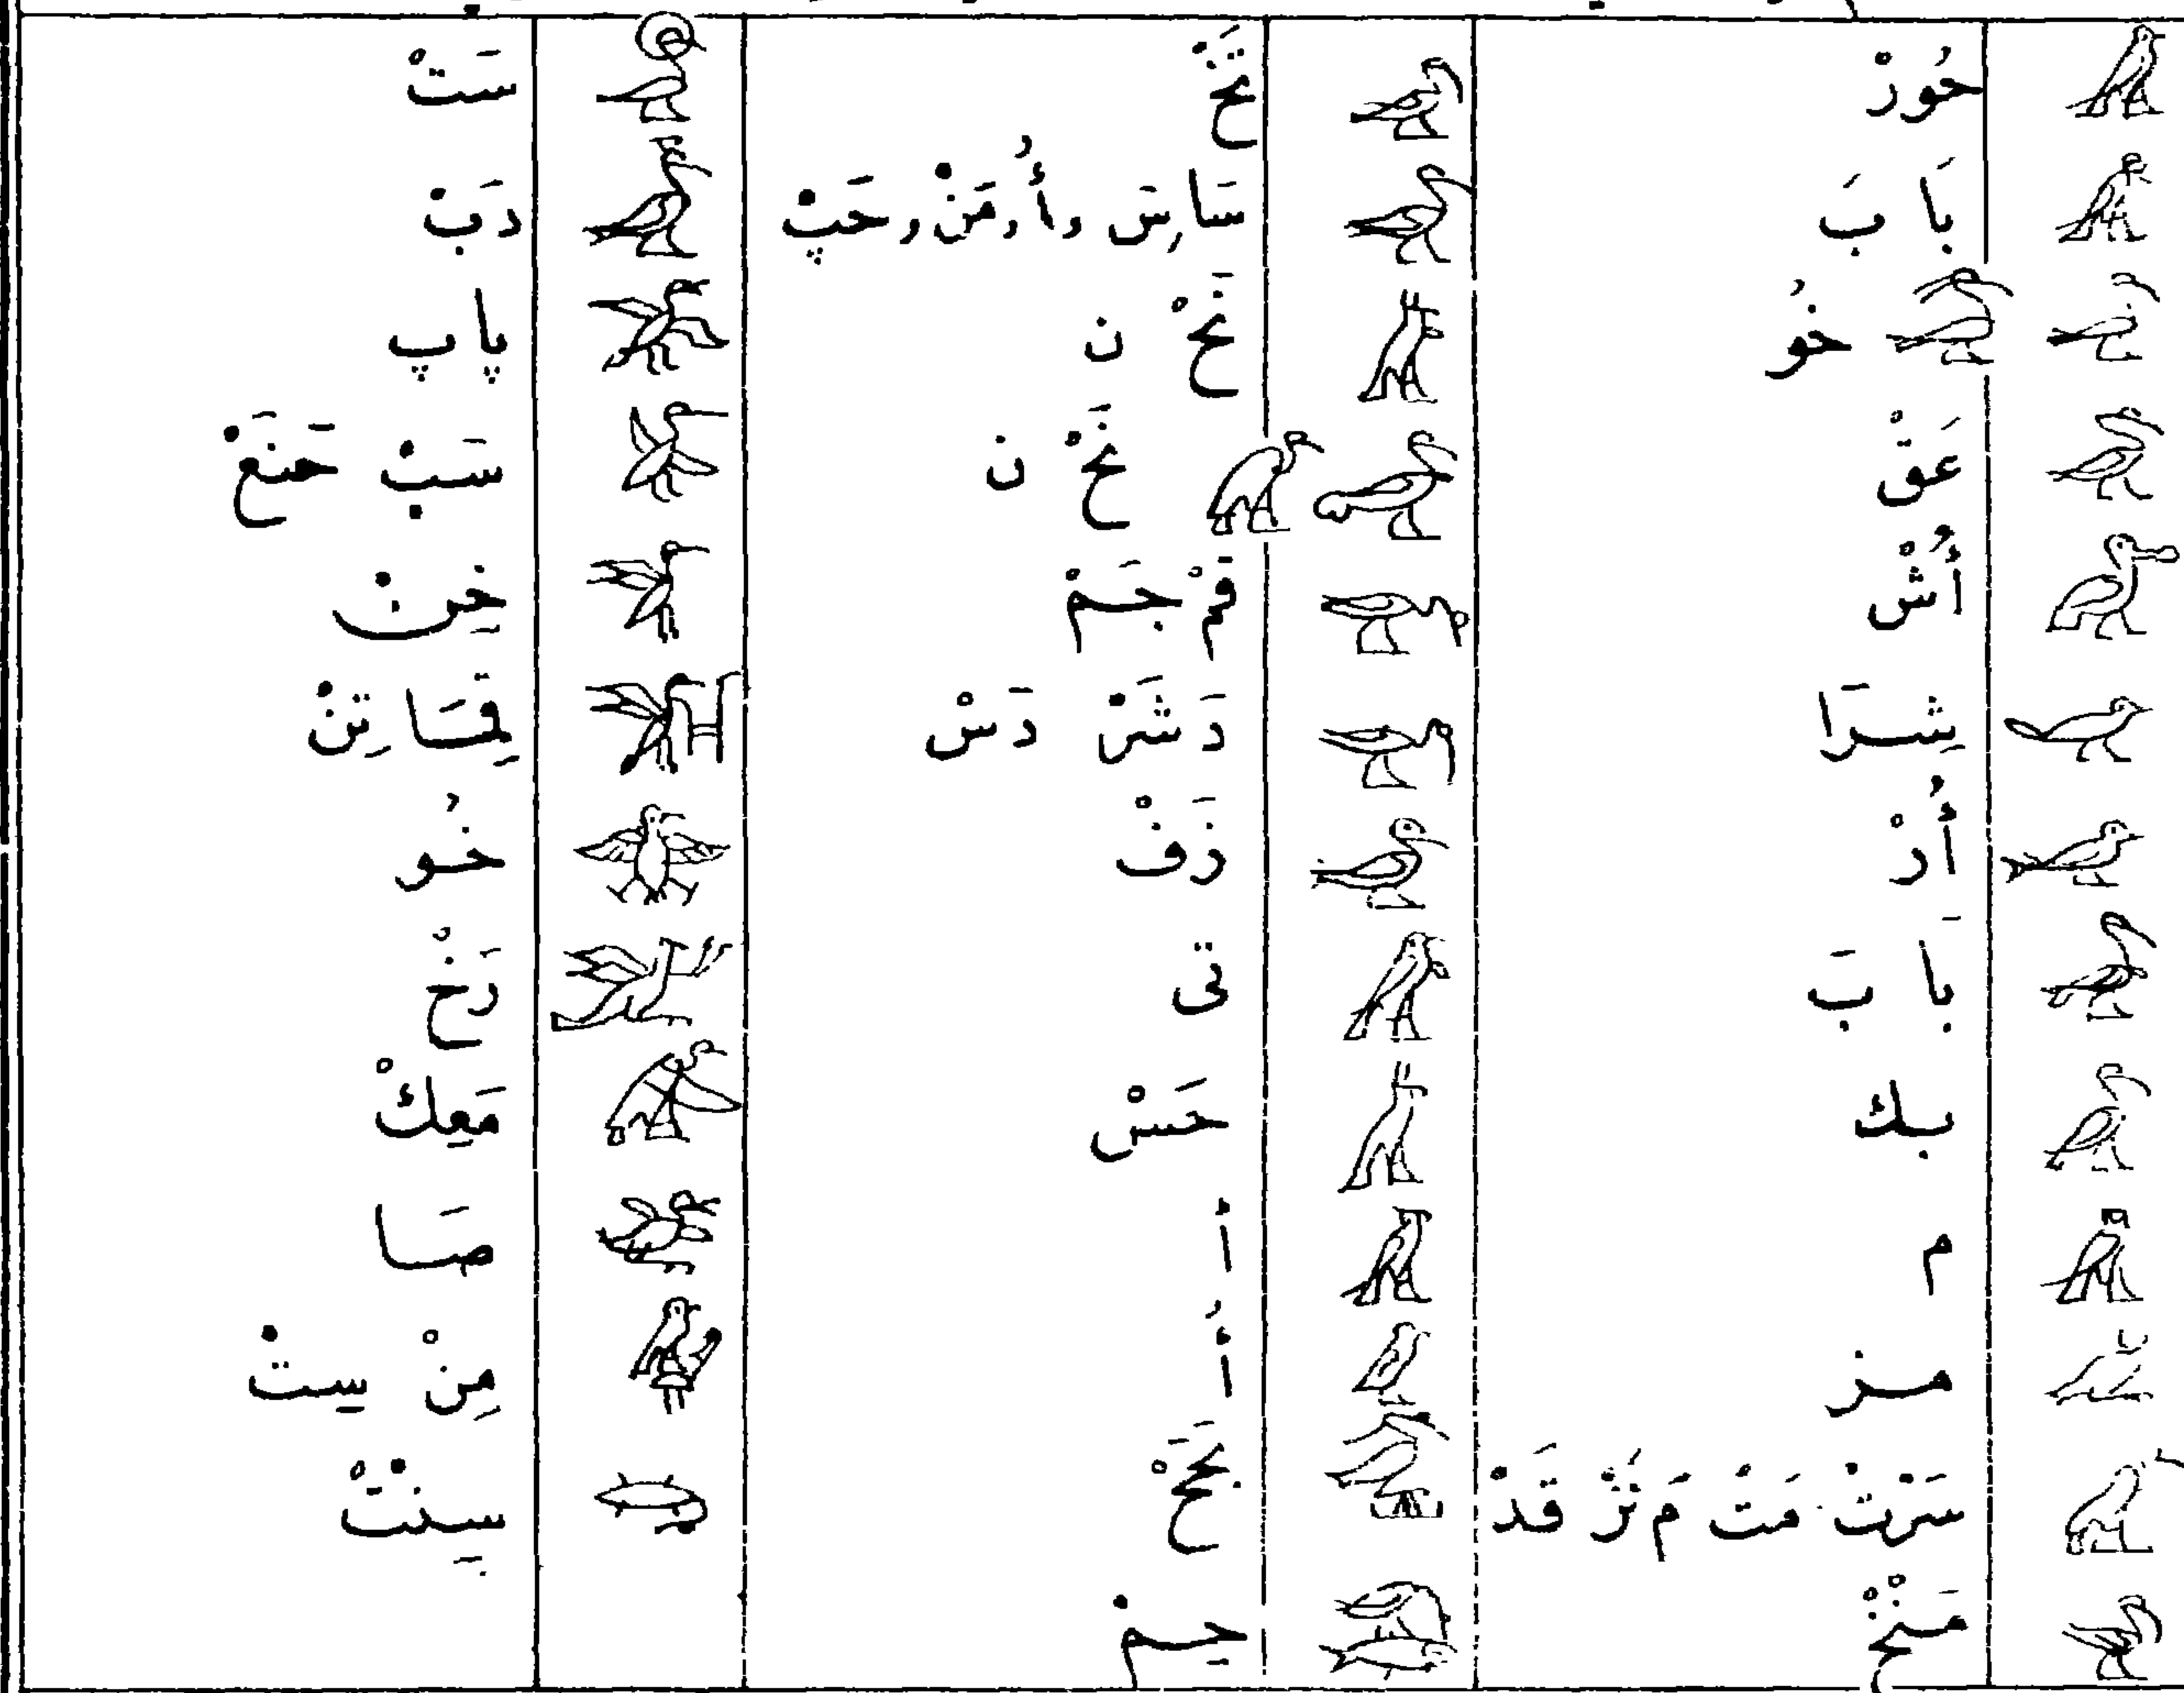 حُورْ
بَا بَ
خُو
عَقْ
أُشْ
شِرَا
أُرْ
بَا بَ
بك
م
مز
سَرْتْ مَتْ مَ نَرْ قَدْ
مَنْخْ
سَارِسَ وأُرمَنْ وحَپْ
نَخْ ن
نَخْ ن
قَمْ جَمْ
دَشَرْ دَسْ
زَفْ
تى
حَسْ
أ
أُ
بَخَخْ
حِمْ
سَتْ
دَبْ
پاپ
سَبْ حَنَعْ
خِنْ
خُو
رَخْ
مَعِكْ
صَا
مِنْ سِتْ
سِنْتْ